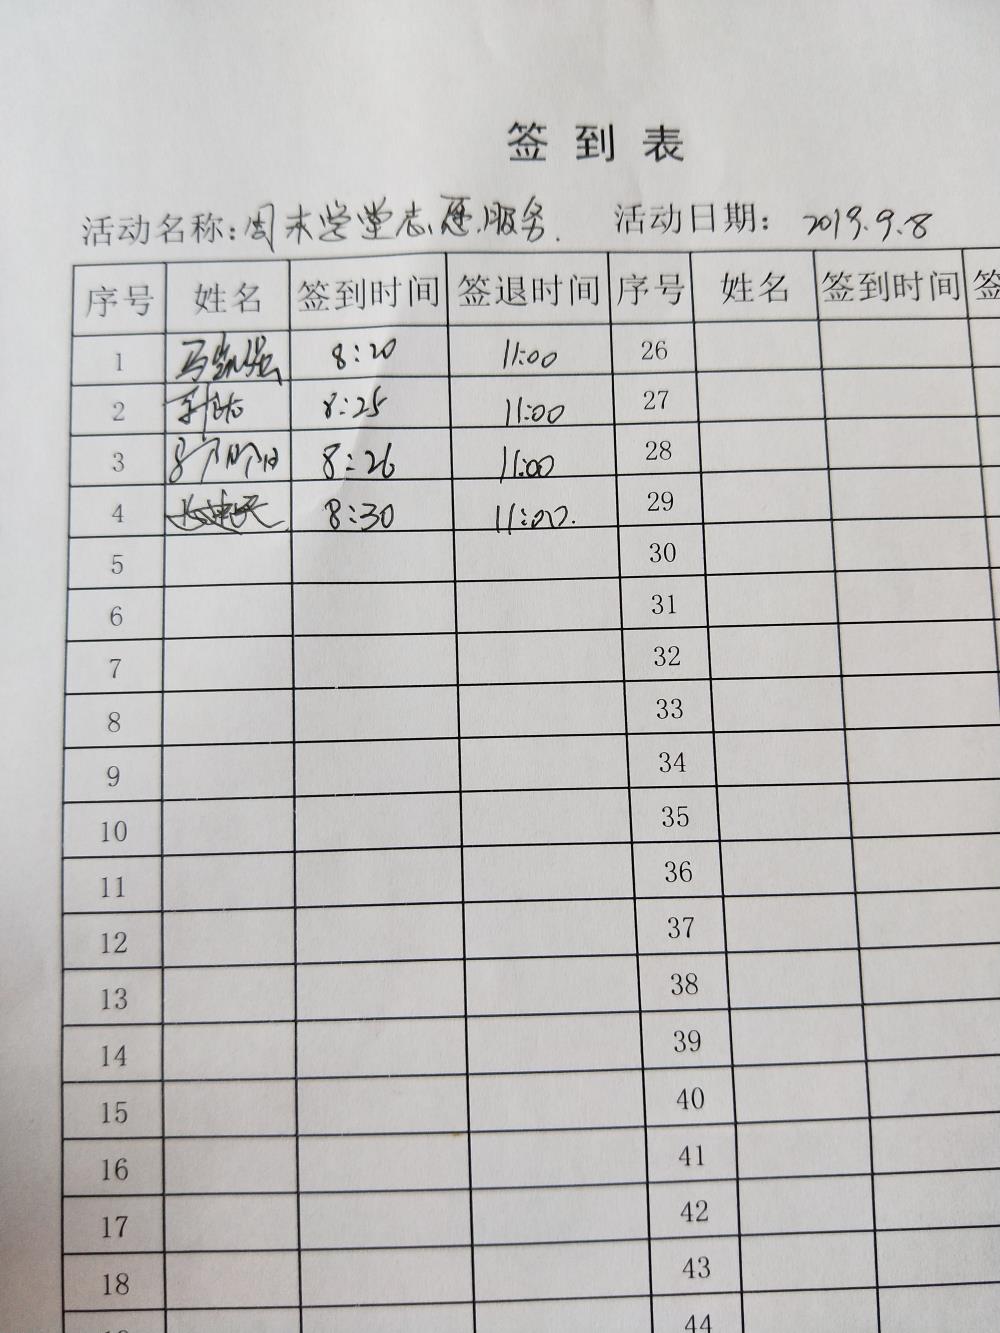 签到表
活动名称:周末学堂志愿服务. 活动日期: 2019.9.8
序号 姓名 签到时间 签退时间 序号 姓名 签到时间 签
1 8:20 11:00 26
2 8:25 11:00 27
3 8:26 11:00 28
4 8:30 11:00. 29
5 30
6 31
7 32
8 33
9 34
10 35
11 36
12 37
13 38
14 39
15 40
16 41
17 42
18 43
44